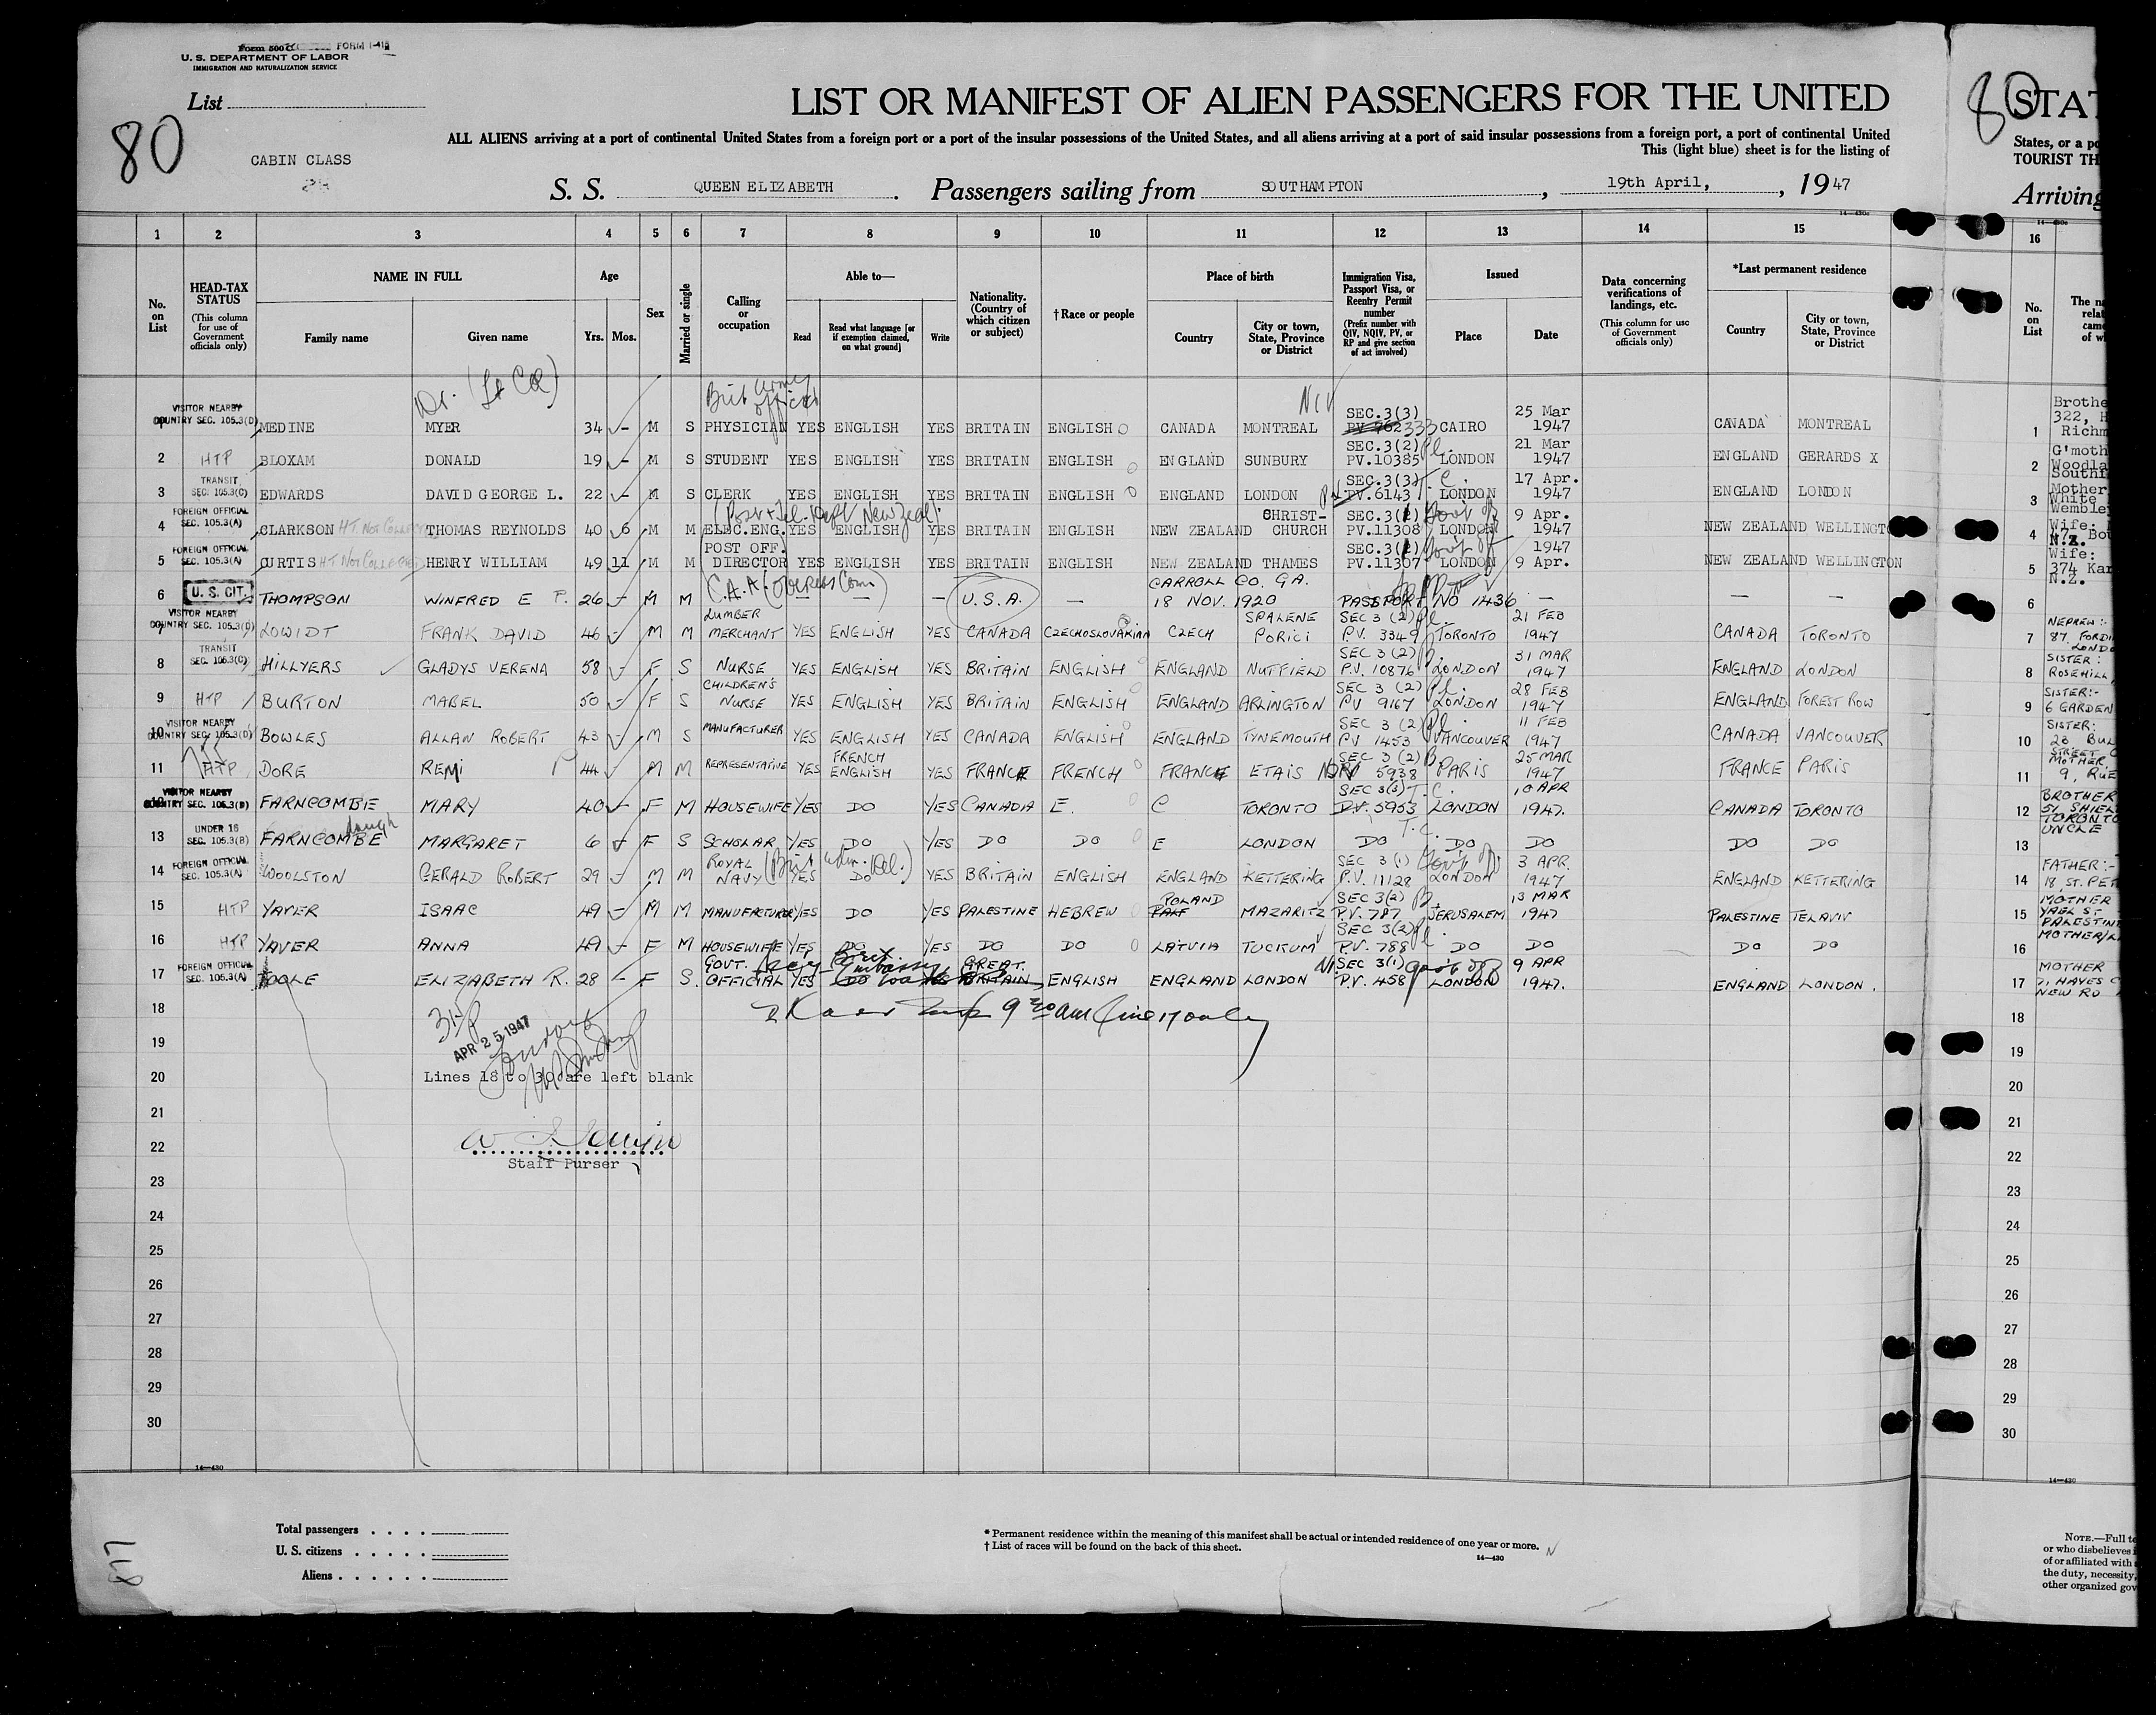 Form 500 C FORM I-415
U. S. DEPARTMENT OF LABOR
IMMIGRATION AND NATURALIZATION SERVICE
List
80
LIST OR MANIFEST OF ALIEN PASSENGERS FOR THE UNITED
80 STAT
ALL ALIENS arriving at a port of continental United States from a foreign port or a port of the insular possessions of the United States, and all aliens arriving at a port of said insular possessions from a foreign port, a port of continental United
This (light blue) sheet is for the listing of
States, or a po
TOURIST TH
CABIN CLASS
S. S. QUEEN ELIZABETH. Passengers sailing from SOUTHAMPTON, 19th April, , 1947
Arriving
14—430c
1 2 3 4 5 6 7 8 9 10 11 12 13 14 15 16
No. on List
HEAD-TAX STATUS (This column for use of Government officials only)
NAME IN FULL Family name Given name
Age Yrs. Mos.
Sex
Married or single
Calling or occupation
Able to— Read Read what language [or if exemption claimed, on what ground] Write
Nationality. (Country of which citizen or subject)
† Race or people
Place of birth Country City or town, State, Province or District
Immigration Visa, Passport Visa, or Reentry Permit number (Prefix number with QIV, NQIV, PV, or RP and give section of act involved)
Issued Place Date
Data concerning verifications of landings, etc. (This column for use of Government officials only)
*Last permanent residence Country City or town, State, Province or District
No. on List
Dr. (Lt Col) Brit Army officer NIV
VISITOR NEARBY COUNTRY SEC. 105.3(D) MEDINE MYER 34 - M S PHYSICIAN YES ENGLISH YES BRITAIN ENGLISH CANADA MONTREAL SEC.3(3) CAIRO 25 Mar 1947 CANADA MONTREAL 1 Brothe 322, H Richm
2 HTP BLOXAM DONALD 19 - M S STUDENT YES ENGLISH YES BRITAIN ENGLISH ENGLAND SUNBURY SEC.3(2) PV.10385 LONDON 21 Mar 1947 ENGLAND GERARDS X 2 G'moth Woodla Southf
3 TRANSIT SEC. 105.3(C) EDWARDS DAVID GEORGE L. 22 - M S CLERK YES ENGLISH YES BRITAIN ENGLISH ENGLAND LONDON SEC.3(3) PV.6143 LONDON 17 Apr. 1947 ENGLAND LONDON 3 Mother White Wemble
4 FOREIGN OFFICIAL SEC. 105.3(A) CLARKSON THOMAS REYNOLDS 40 6 M M ELEC.ENG. (Post & Tel. Dept New Zeal.) YES ENGLISH YES BRITAIN ENGLISH NEW ZEALAND CHRIST-CHURCH SEC.3(1) PV.11308 Gov't off LONDON 9 Apr. 1947 NEW ZEALAND WELLINGT 4 Wife: 47, Bou N.Z.
5 FOREIGN OFFICIAL SEC. 105.3(A) CURTIS HENRY WILLIAM 49 11 M M POST OFF. DIRECTOR YES ENGLISH YES BRITAIN ENGLISH NEW ZEALAND THAMES SEC.3(1) PV.11307 Gov't off LONDON 1947 9 Apr. NEW ZEALAND WELLINGTON 5 Wife: 374 Kar N.Z.
6 U. S. CIT. THOMPSON WINFRED E P. 26 - M M C.A.A. (Overseas Com) — — — U.S.A. — CARROLL CO. GA. 18 NOV. 1920 PASSPORT NO 1436 — — — 6
7 VISITOR NEARBY COUNTRY SEC. 105.3(D) LOWIDT FRANK DAVID 46 M M LUMBER MERCHANT YES ENGLISH YES CANADA CZECHOSLOVAKIAN CZECH SPALENE PORICI SEC 3 (2) P.V. 3349 TORONTO 21 FEB 1947 CANADA TORONTO 7 NEPHEW:- 87, FORDI LONDO
8 TRANSIT SEC. 105.3(C) HILLYERS GLADYS VERENA 58 F S NURSE YES ENGLISH YES BRITAIN ENGLISH ENGLAND NUTFIELD SEC 3 (2) P.V. 10876 LONDON 31 MAR 1947 ENGLAND LONDON 8 SISTER: ROSEHILL,
9 HTP BURTON MABEL 50 F S CHILDREN'S NURSE YES ENGLISH YES BRITAIN ENGLISH ENGLAND ARLINGTON SEC 3 (2) PV 9167 LONDON 28 FEB 1947 ENGLAND FOREST ROW 9 SISTER:- 6 GARDEN
10 VISITOR NEARBY COUNTRY SEC. 105.3(D) BOWLES ALLAN ROBERT 43 M S MANUFACTURER YES ENGLISH YES CANADA ENGLISH ENGLAND TYNEMOUTH SEC 3 (2) PV 1453 VANCOUVER 11 FEB 1947 CANADA VANCOUVER 10 SISTER: 28 BUL STREET
11 HTP DORE REMI 44 M M REPRESENTATIVE YES FRENCH ENGLISH YES FRANCE FRENCH FRANCE ETAIS SEC 3 (2) 5938 PARIS 25 MAR 1947 FRANCE PARIS 11 MOTHER, 9, RUE
12 VISITOR NEARBY COUNTRY SEC. 105.3(D) FARNCOMBE MARY 40 F M HOUSEWIFE YES DO YES CANADA E. C TORONTO SEC 3(3) P.V. 5953 LONDON 10 APR 1947. CANADA TORONTO 12 BROTHER 51 SHIEL TORONTO
13 UNDER 16 SEC. 105.3(B) FARNCOMBE daugh MARGARET 6 F S SCHOLAR YES DO YES DO DO E LONDON DO T.C. DO DO DO DO 13 UNCLE
14 FOREIGN OFFICIAL SEC. 105.3(A) WOOLSTON GERALD ROBERT 29 M M ROYAL NAVY (Brit Adm. Del.) YES DO YES BRITAIN ENGLISH ENGLAND KETTERING SEC 3 (1) P.V. 11128 Gov't off LONDON 3 APR. 1947 ENGLAND KETTERING 14 FATHER:- 18, ST. PET
15 HTP YAVER ISAAC 49 - M M MANUFACTURER YES DO YES PALESTINE HEBREW POLAND MAZARITZ SEC 3(2) P.V. 787 JERUSALEM 13 MAR 1947 PALESTINE TEL AVIV 15 MOTHER YAEL ST PALESTINE
16 HTP YAVER ANNA 49 F M HOUSEWIFE YES DO YES DO DO LATVIA TUCKUM SEC 3(2) P.V. 788 DO DO DO DO 16 MOTHER/L
17 FOREIGN OFFICIAL SEC. 105.3(A) TOOLE ELIZABETH R. 28 - F S. GOVT. OFFICIAL YES Brit Embassy GREAT BRITAIN ENGLISH ENGLAND LONDON SEC 3(1) P.V. 458 Gov't off LONDON 9 APR 1947. ENGLAND LONDON. 17 MOTHER 7, HAYES C NEW RD
18 18
APR 25 1947
19 19
20 Lines 18 to 30 are left blank 20
21 21
22 22
Staff Purser
23 23
24 24
25 25
26 26
27 27
28 28
29 29
30 30
14—430 14—430
Total passengers . . . .
U. S. citizens . . . . .
Aliens . . . . . .
* Permanent residence within the meaning of this manifest shall be actual or intended residence of one year or more.
† List of races will be found on the back of this sheet.
14—430
NOTE.—Full te
or who disbelieves i
of or affiliated with
the duty, necessity,
other organized gov